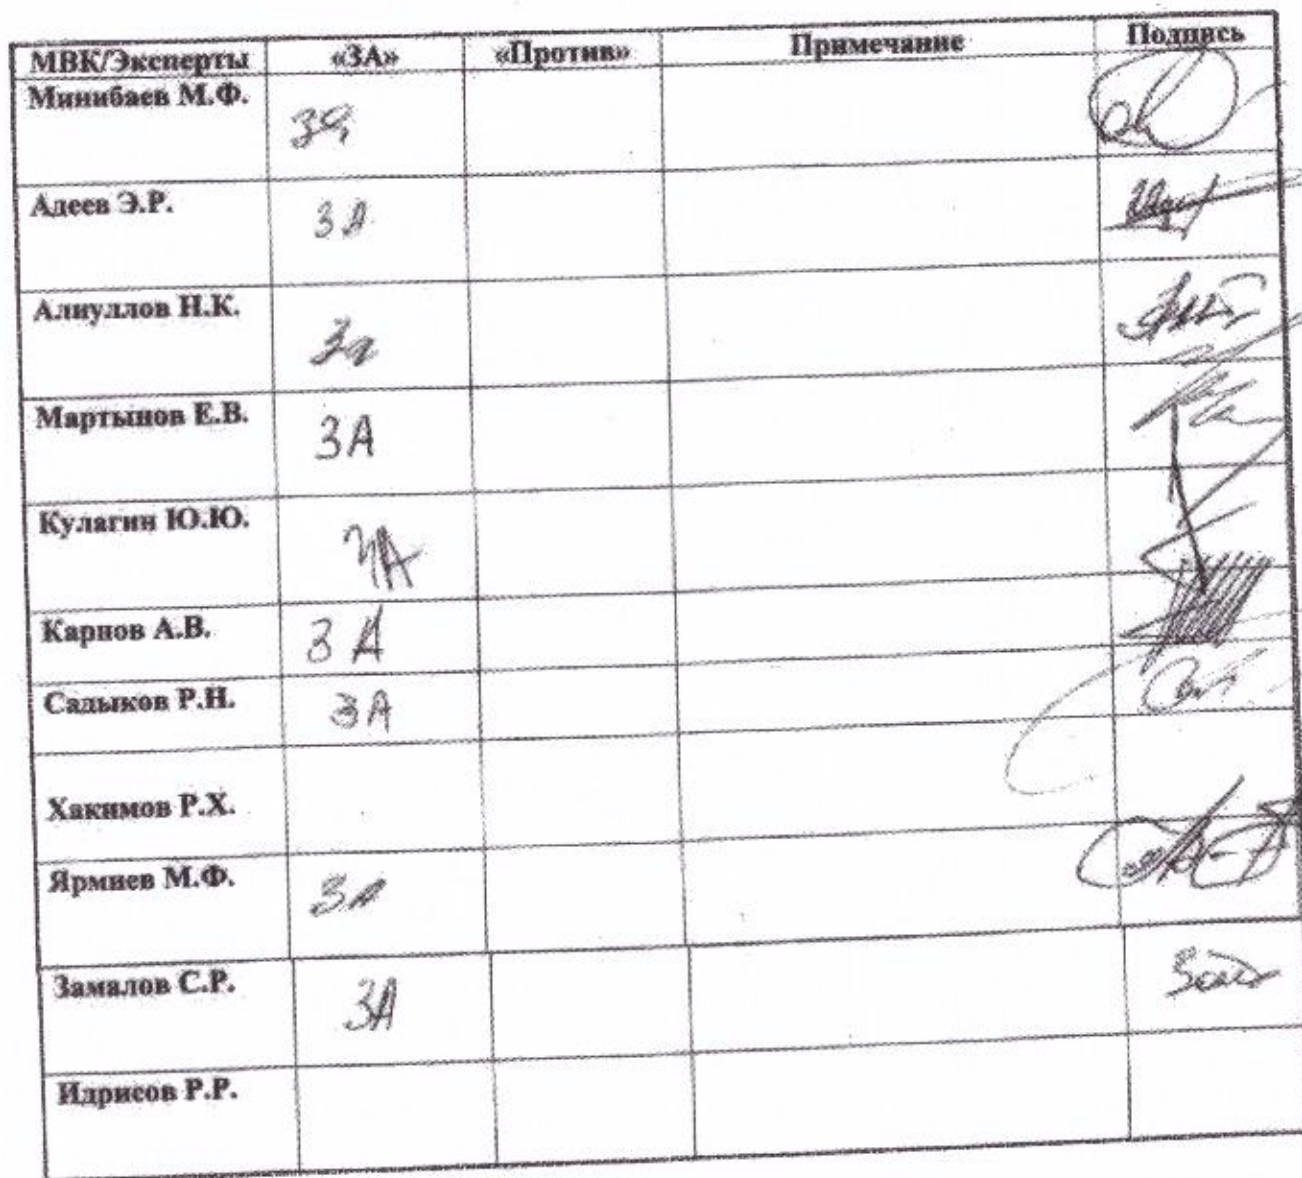 МВК/Эксперты «ЗА» «Против» Примечание Подпись
Минибаев М.Ф. за
Адеев Э.Р. ЗА
Алиуллов Н.К. За
Мартынов Е.В. ЗА
Кулагин Ю.Ю. ЗА
Карпов А.В. ЗА
Садыков Р.Н. ЗА
Хакимов Р.Х.
Ярмиев М.Ф. ЗА
Замалов С.Р. ЗА
Идрисов Р.Р.